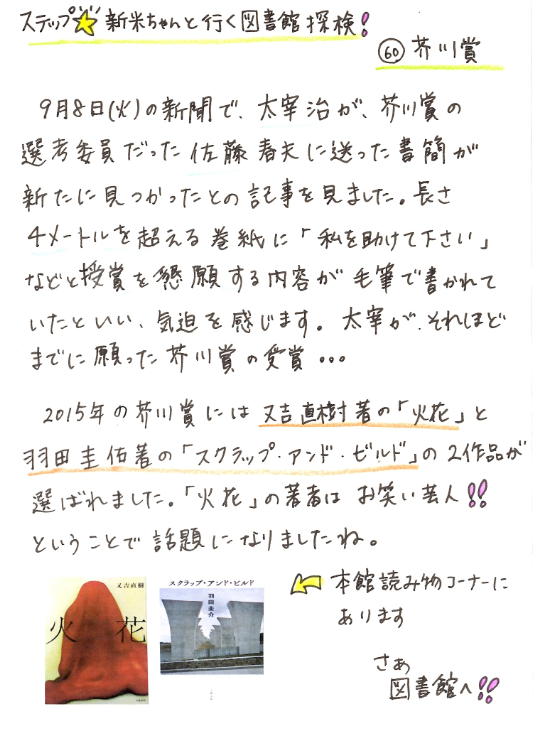 ステップ☆新米ちゃんと行く図書館探検!
60 芥川賞
9月8日(火)の新聞で、太宰治が、芥川賞の
選考委員だった佐藤春夫に送った書簡が
新たに見つかったとの記事を見ました。長さ
4メートルを超える巻紙に「私を助けて下さい」
などと授賞を懇願する内容が毛筆で書かれて
いたといい、気迫を感じます。太宰が、それほど
までに願った芥川賞の受賞・・・
2015年の芥川賞には又吉直樹著の「火花」と
羽田圭佑著の「スクラップ・アンド・ビルド」の2作品が
選ばれました。「火花」の著者はお笑い芸人!!
ということで話題になりましたね。
又吉直樹
火花
スクラップ・アンド・ビルド
羽田圭介
本館読み物コーナーに
あります
さぁ
図書館へ!!